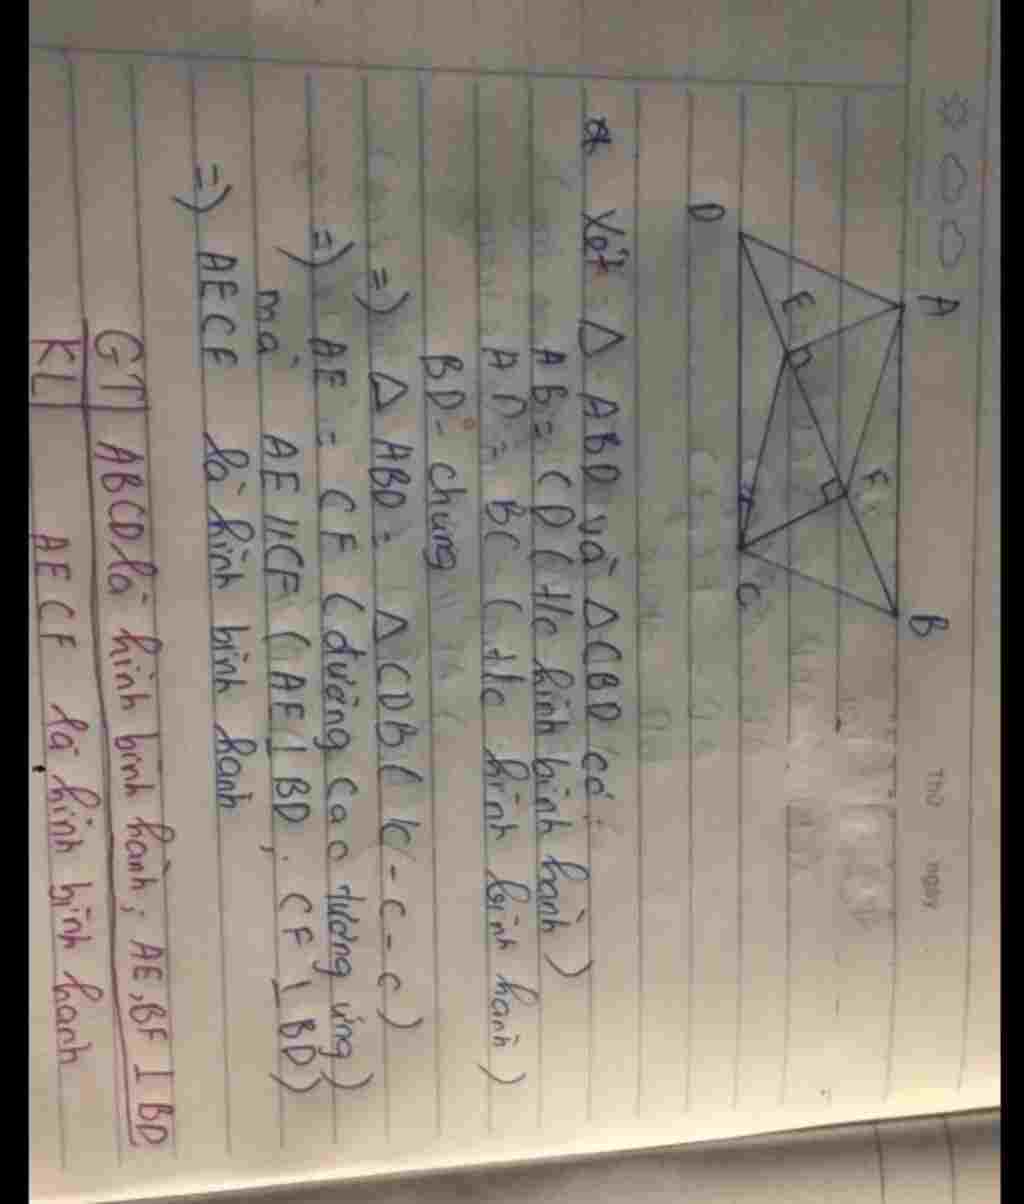 Thứ ngày
A B
E F
D C
* Xét Δ ABD và Δ CBD có:
AB = CD ( t/c hình bình hành)
AD = BC ( t/c hình bình hành)
BD - chung
=) Δ ABD = Δ CDB ( c - c - c)
=) AE = CF ( đường cao tương ứng)
mà AE // CF ( AE ⊥ BD, CF ⊥ BD)
=) AECF là hình bình hành
GT ABCD là hình bình hành; AE, BF ⊥ BD
KL AECF là hình bình hành